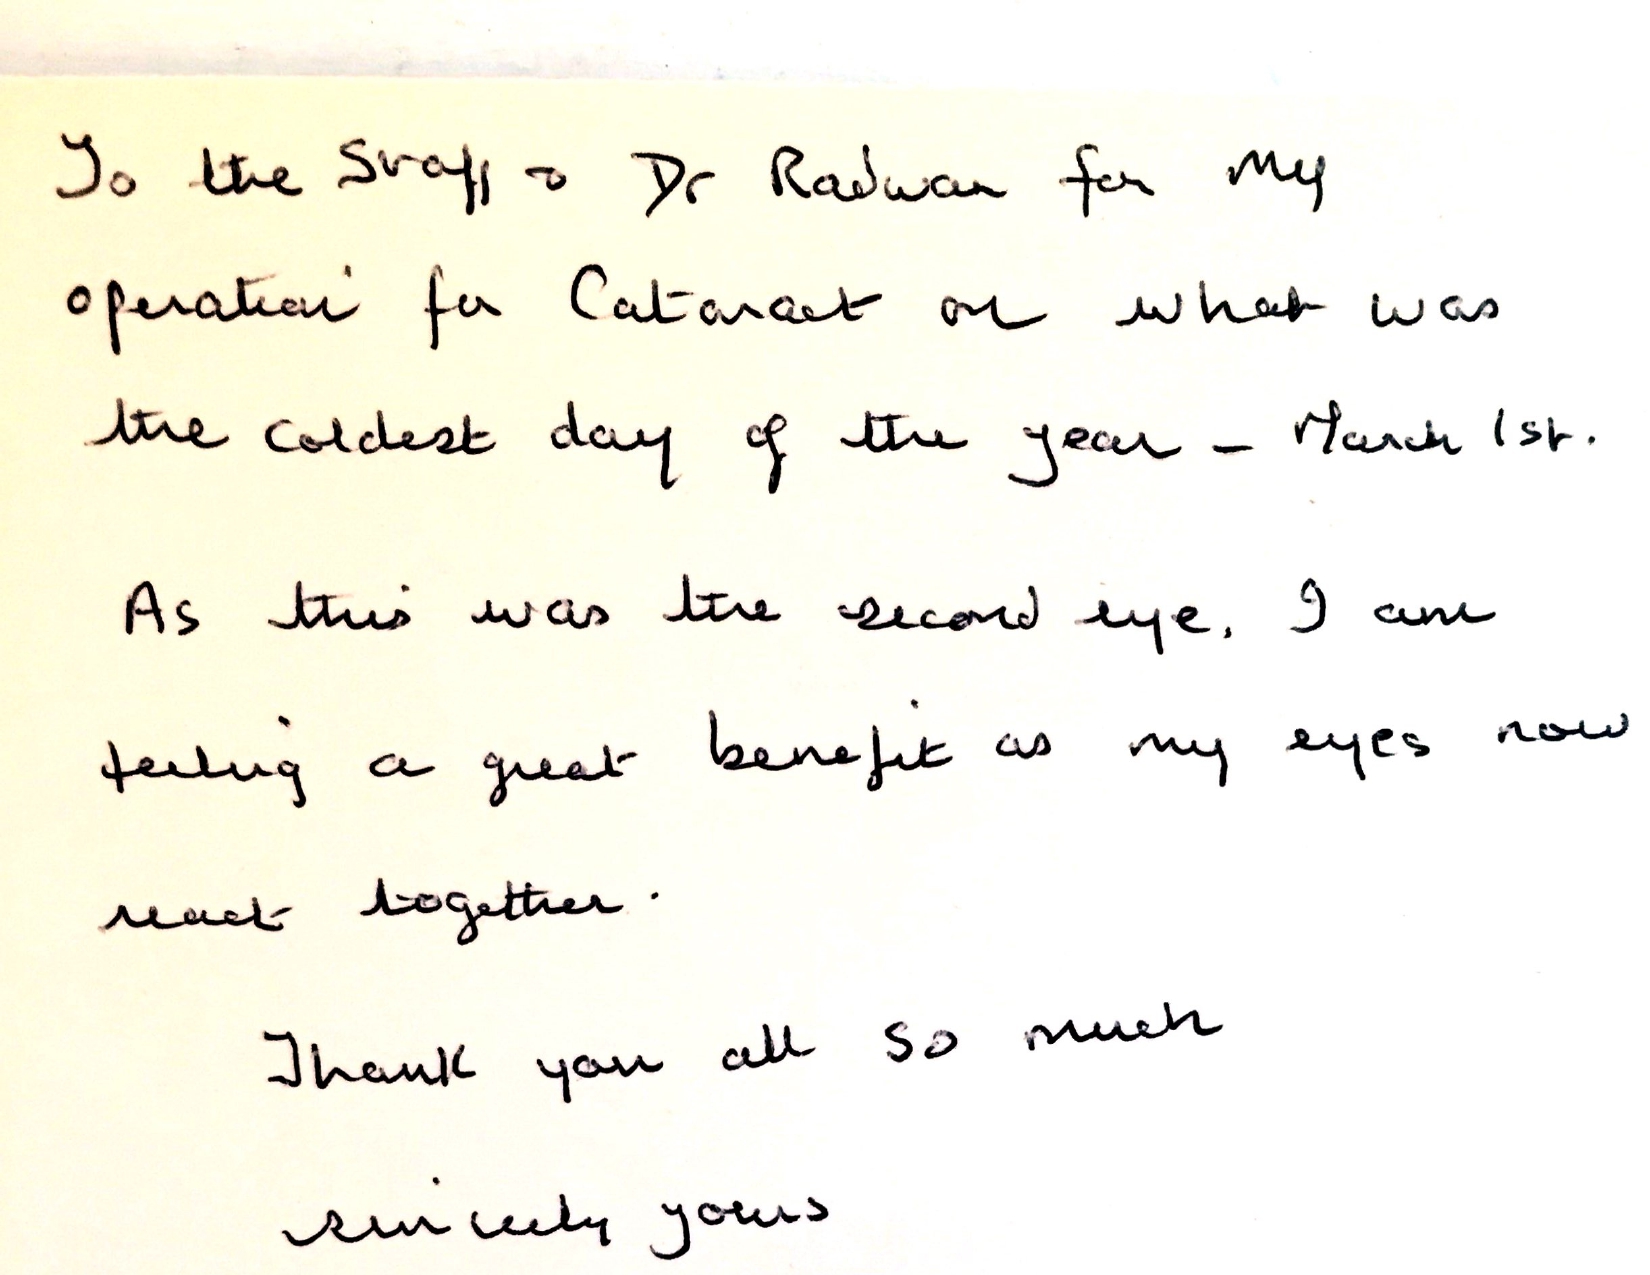 To the Staff & Dr Radwan for My
operation for Cataract on what was
the coldest day of the year - March 1st.
As this was the second eye, I am
feeling a great benefit as my eyes now
react together.
Thank you all so much
sincerely yours